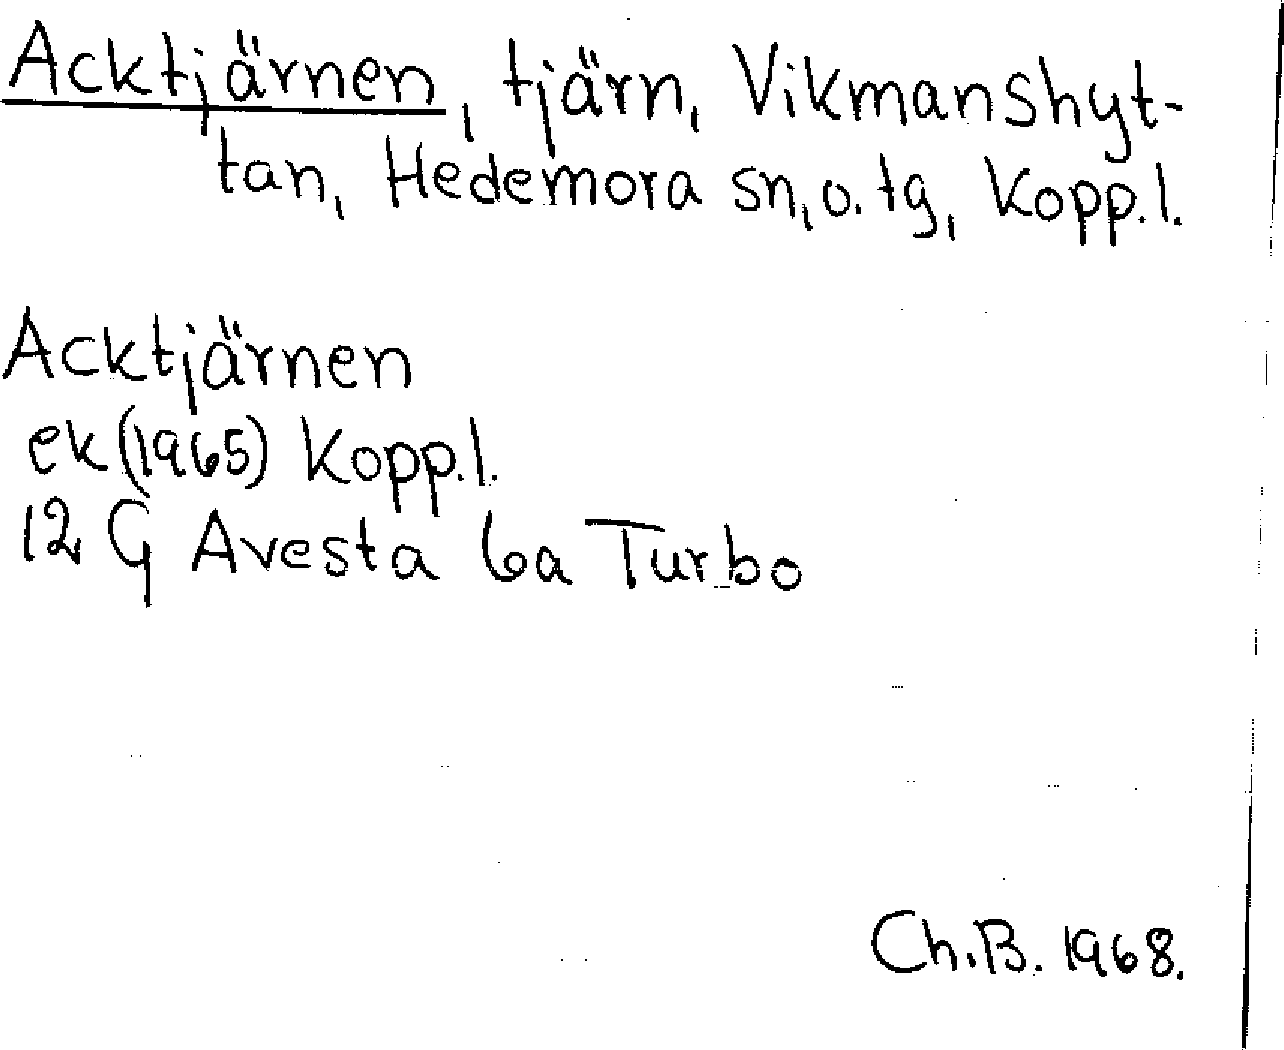 Acktjärnen, tjärn, Vikmanshyt-
tan, Hedemora sn, o. tg, Kopp. l.
Acktjärnen
ek (1965) Kopp. l.
12 G Avesta 6a Turbo
Ch. B. 1968.